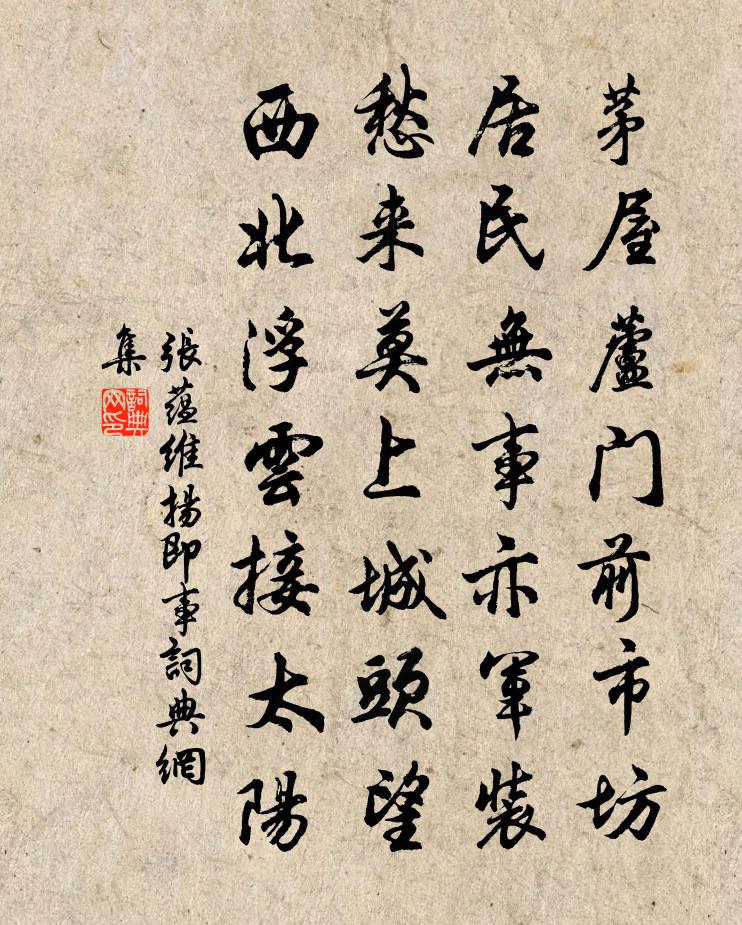 茅屋蘆门前市坊
居民無事亦軍裝
愁来莫上城頭望
西北浮雲接太陽
張蕴維揚即事詞典網
集
詞典网印